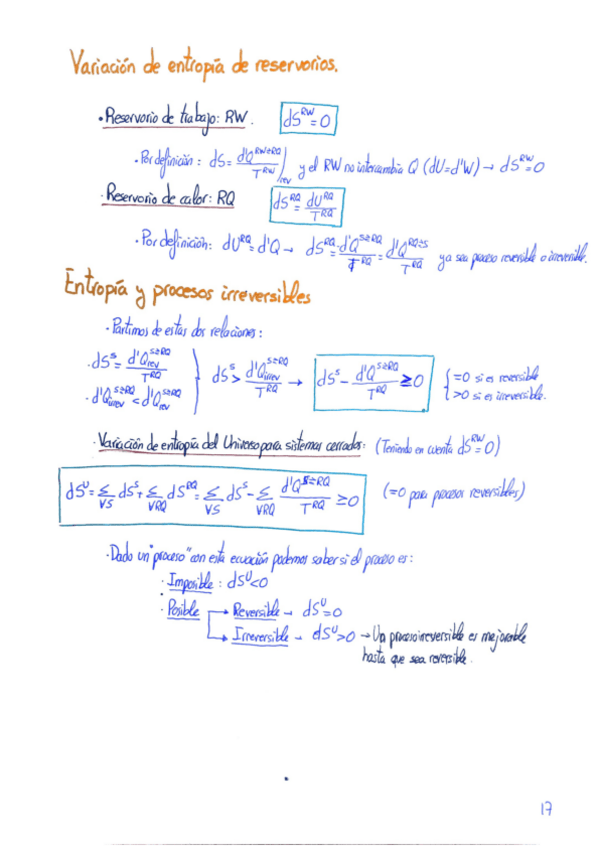 Variación de entropía de reservorios.
· Reservorio de trabajo: RW. dS^RW = 0
· Por definición: dS = d'Q^RW≥RQ / T^RW |rev y el RW no intercambia Q (dU = d'W) → dS^RW = 0
· Reservorio de calor: RQ dS^RQ = dU^RQ / T^RQ
· Por definición: dU^RQ = d'Q → dS^RQ = - d'Q^S≥RQ / T^RQ = d'Q^RQ≥S / T^RQ ya sea proceso reversible o irreversible.
Entropía y procesos irreversibles
· Partimos de estas dos relaciones:
· dS^S = d'Q_rev^S≥RQ / T^RQ
· d'Q_irrev^S≥RQ < d'Q_rev^S≥RQ } dS^S > d'Q_irrev^S≥RQ / T^RQ → dS^S - d'Q^S≥RQ / T^RQ ≥ 0 { =0 si es reversible
>0 si es irreversible.
· Variación de entropía del Universo para sistemas cerrados: (Teniendo en cuenta dS^RW = 0)
dS^U = Σ_VS dS^S + Σ_VRQ dS^RQ = Σ_VS dS^S - Σ_VRQ d'Q^S≥RQ / T^RQ ≥ 0 (=0 para procesos reversibles)
· Dado un "proceso" con esta ecuación podemos saber si el proceso es:
· Imposible: dS^U < 0
· Posible → Reversible → dS^U = 0
→ Irreversible → dS^U > 0 → Un proceso irreversible es mejorable
hasta que sea reversible.
17